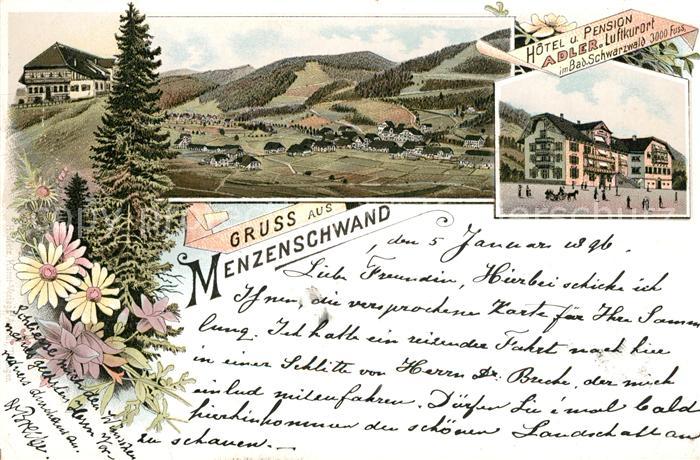 HÔTEL u. PENSION
ADLER. Luftkurort
im Bad. Schwarzwald 3000 Fuss.
GRUSS AUS
MENZENSCHWAND
, den 5 Januar 1896.
Liebe Freundin, Hierbei schicke ich
Ihnen, die versprochene Karte für Ihre Samm
lung. Ich hatte ein reitender Fahrt nach hier
in einer Schlitte von Herrn Dr. der mich
einlud mitzufahren. Dürfen Sie i'mal bald
hierhinkommen der schönen Landschaft an
zu schauen. —
Schliesse mich den Wünschen